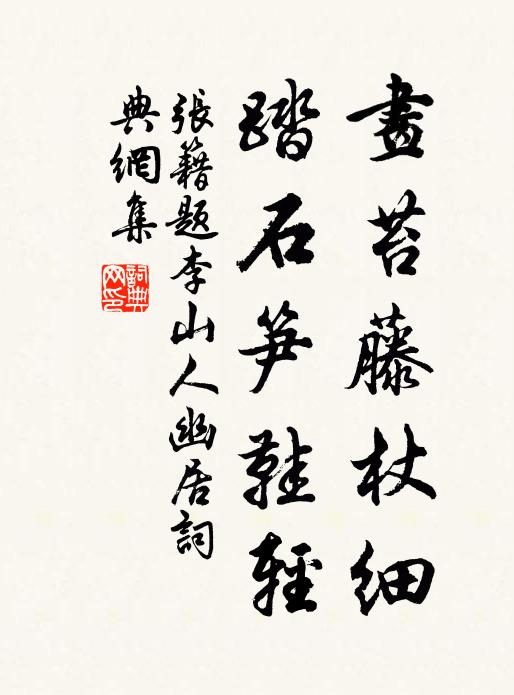 畫苔藤杖細
踏石笋鞋輕
張籍題李山人幽居詞
典網集
詞典網印